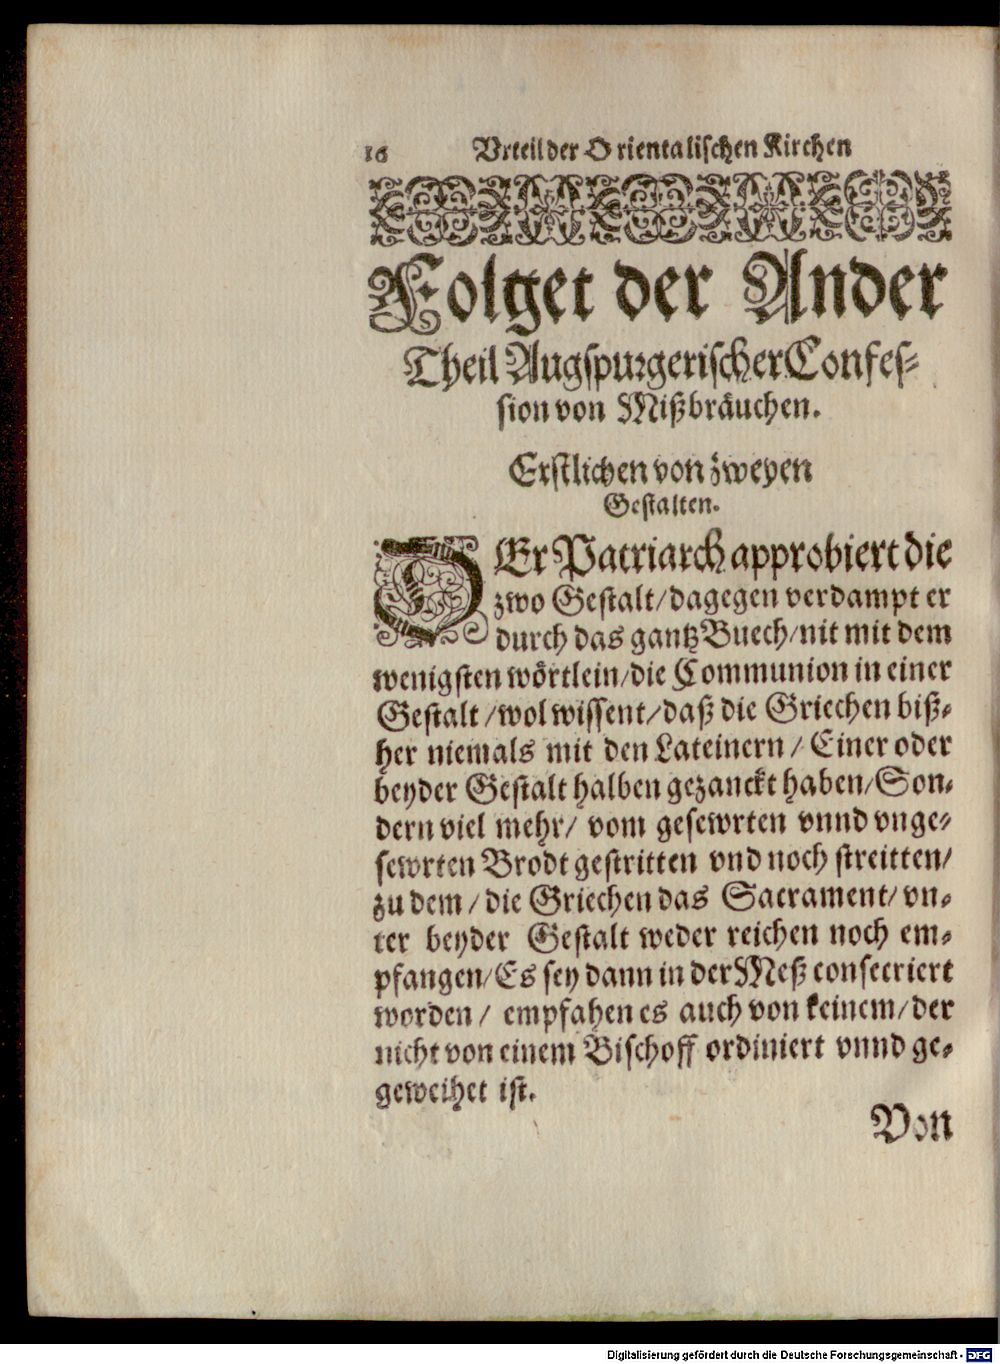 16 Vrteil der Orientalischen Kirchen
Folget der Ander
Theil Augspurgerischer Confes-
sion von Mißbräuchen.
Erstlichen von zweyen
Gestalten.
DEr Patriarch approbiert die
zwo Gestalt/dagegen verdampt er
durch das gantz Buech/nit mit dem
wenigsten wörtlein/die Communion in einer
Gestalt/wol wissent/daß die Griechen biß-
her niemals mit den Lateinern/Einer oder
beyder Gestalt halben gezanckt haben/Son-
dern viel mehr/ vom gesewrten vnnd vnge-
sewrten Brodt gestritten vnd noch streitten/
zu dem/die Griechen das Sacrament/vn-
ter beyder Gestalt weder reichen noch em-
pfangen/Es sey dann in der Meß consecriert
worden/ empfahen es auch von keinem/der
nicht von einem Bischoff ordiniert vnnd ge-
geweihet ist.
Von
Digitalisierung gefördert durch die Deutsche Forschungsgemeinschaft - DFG